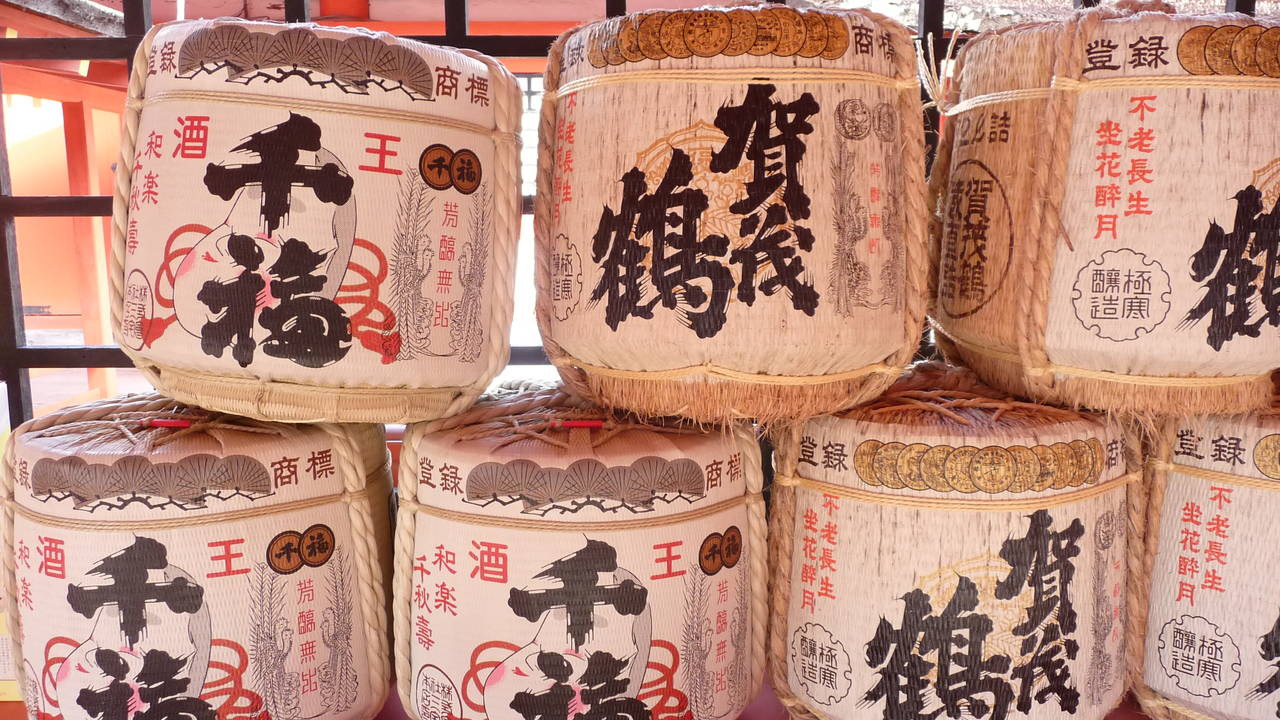 登録 商標
酒 王
千福
千福
和楽
千秋壽
芳醑無出
登録 商標
賀茂
鶴
不老長生
極寒
醸造
登録
不老長生
坐花酔月
極寒
醸造
賀茂鶴
詰
商標
酒 王
千福
千福
和楽
千秋壽
芳醑無出
登録 商標
酒 王
千福
千福
和楽
千秋壽
芳醑無出
登録 商
賀茂
鶴
不老長生
坐花酔月
極寒
醸造
登録
不老長生
坐花酔月
極寒
醸造